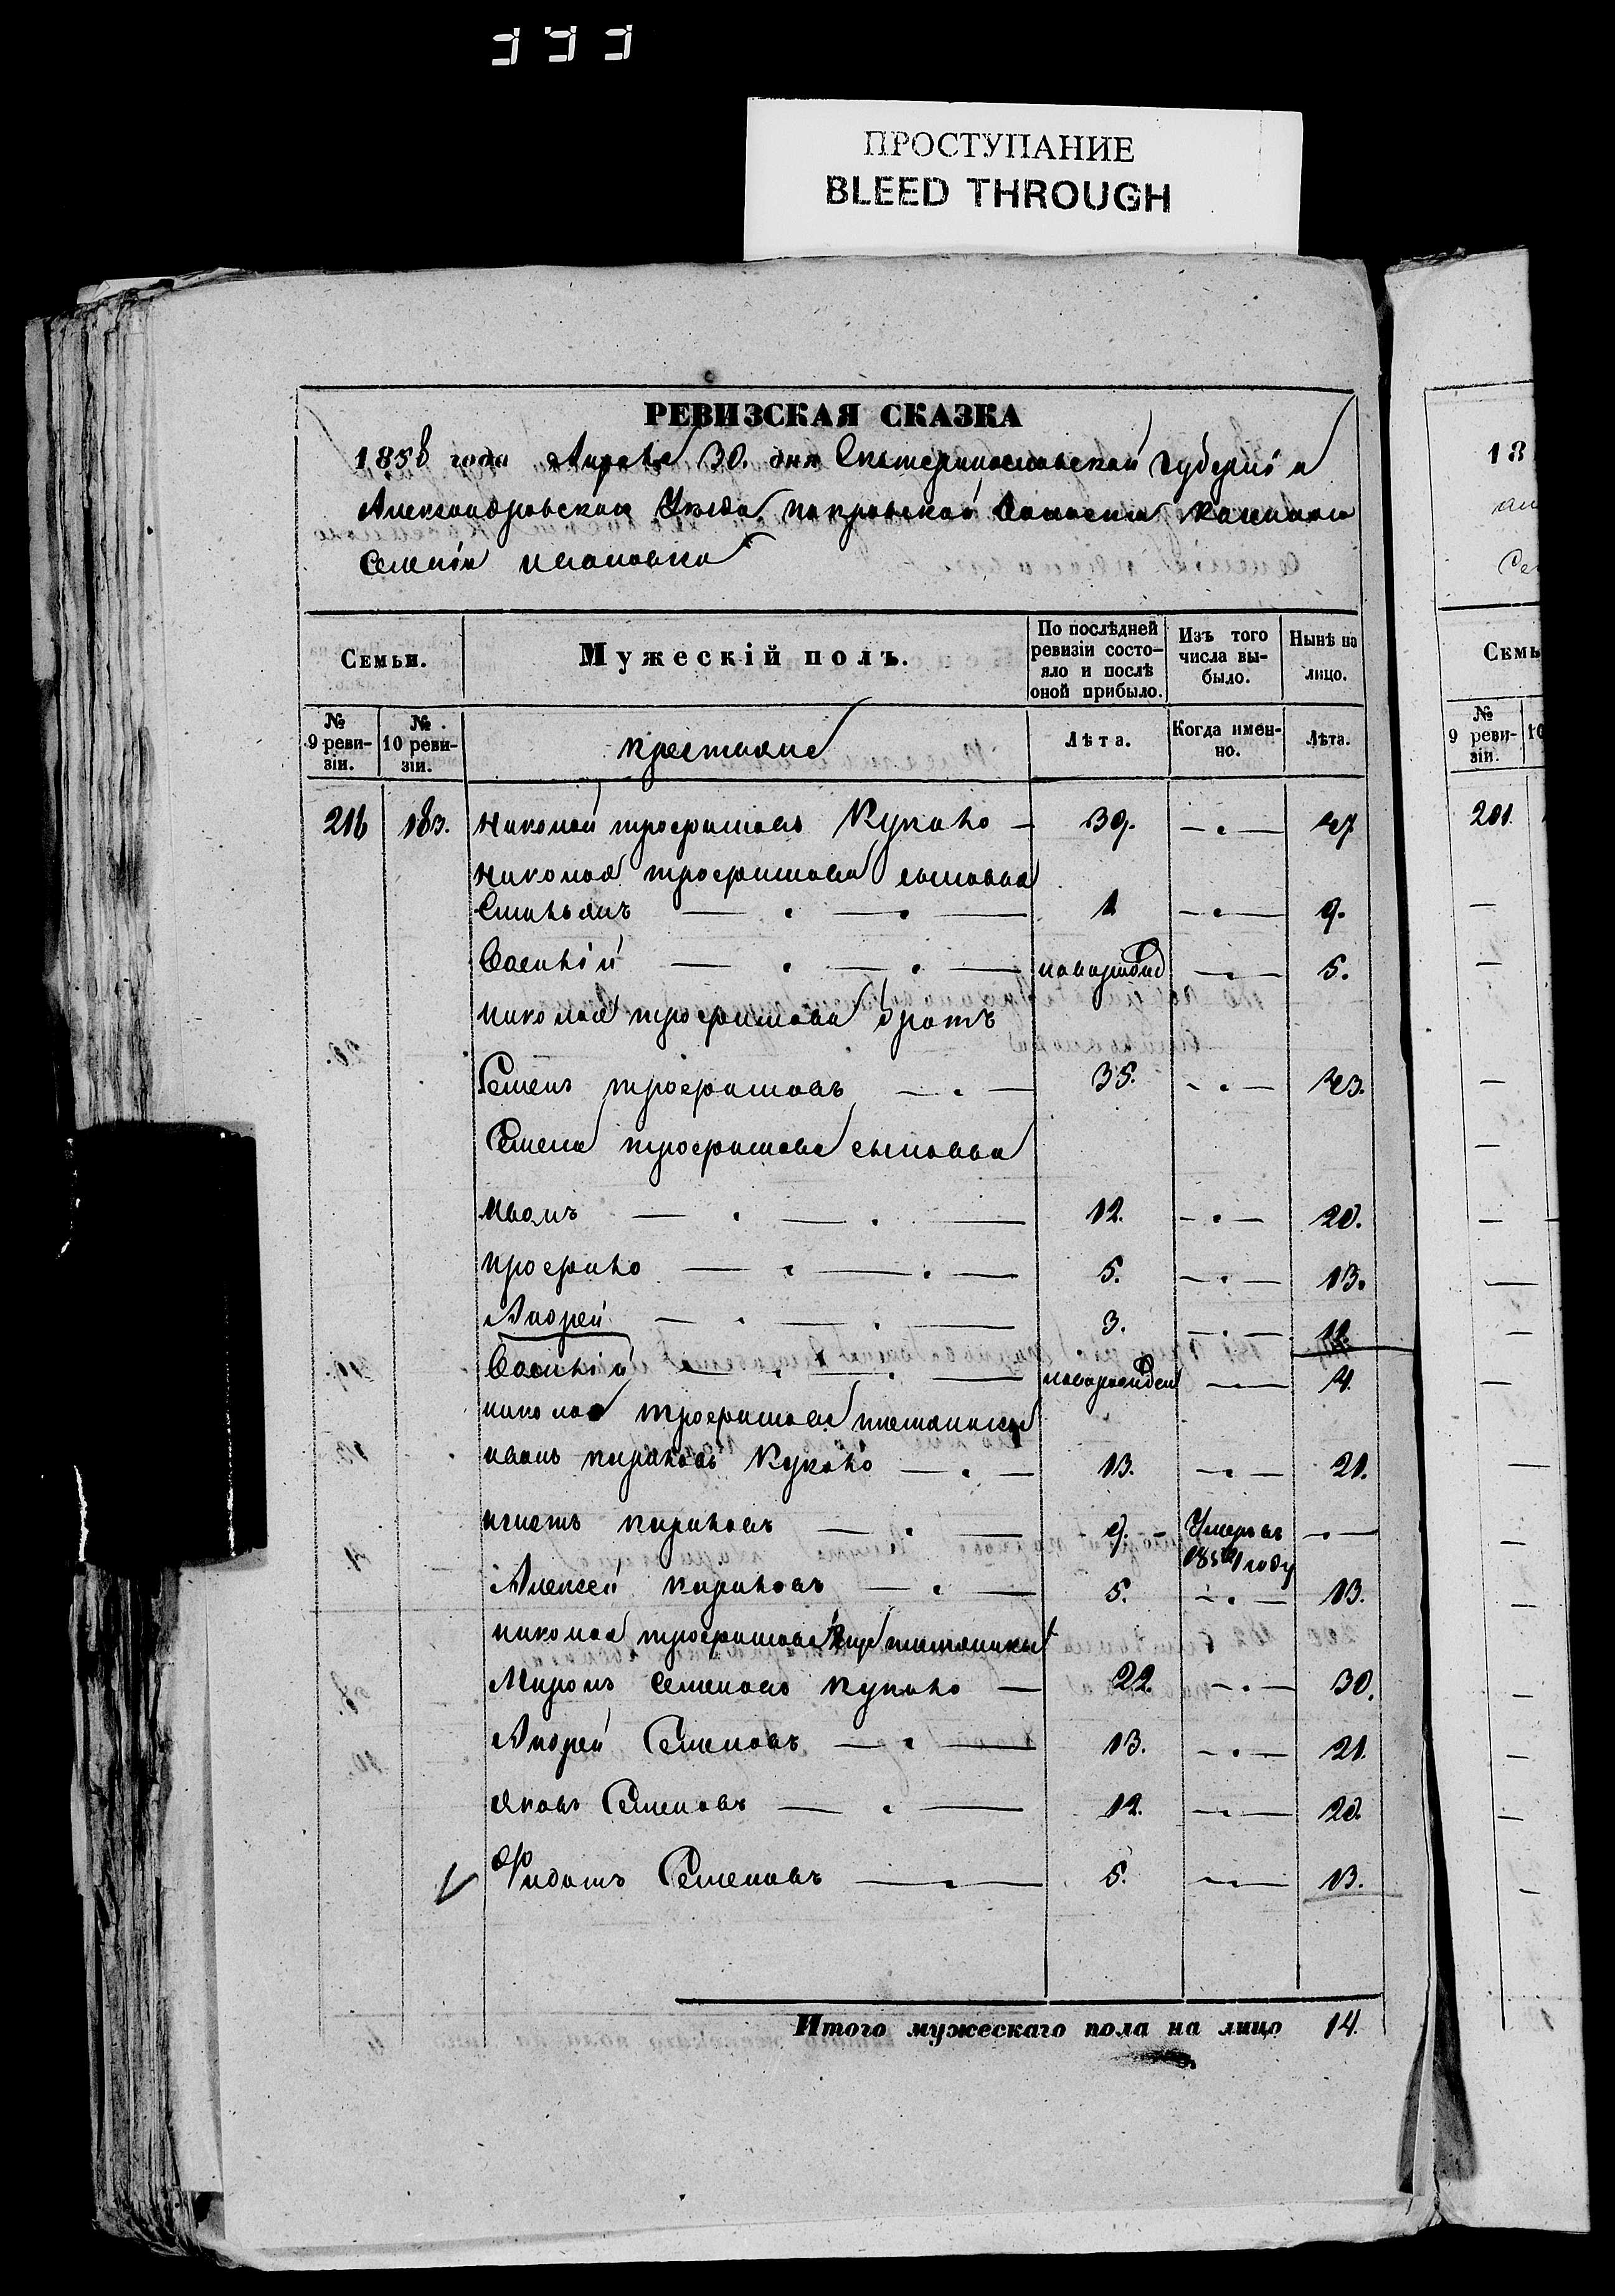 ПРОСТУПАНИЕ
BLEED THROUGH
РЕВИЗСКАЯ СКАЗКА
1858 года Апреля 30. дня Екатеринославской губерніи
Александровскаго Уезда покровской Волости казеннаго
Селенія
Семьи.
Мужескій полъ.
По послѣдней ревизіи состо-
яло и послѣ
оной прибыло.
Изъ того
числа вы-
было.
Нынѣ на
лицо.
№
9 реви-
зіи.
№
10 реви-
зіи.
крестьяне
Лѣта.
Когда имен-
но.
Лѣта.
216 183. Николай трофимовъ Кукало — 39. — 47
Николая трофимова сыновья
Емельянъ — 1 — 9.
Василій — новорожд — 5.
Николая трофимова братъ
Семенъ трофимовъ — 35. — 43.
Семена трофимова сыновья
Иванъ — 12. — 20.
трофимъ — 5. — 13.
Андрей — 3. — 11.
Василій — новорожден — 4.
Николая трофимова племянники
иванъ кириловъ Кукало — 13. — 21.
игнатъ кириловъ — 9. — Умеръ въ
1854 году —
Алексей кириловъ — 5. — 13.
Николая трофимова племянники
Миронъ Семеновъ Кукало — 22. — 30.
Андрей Семеновъ — 13. — 21.
Яковъ Семеновъ — 12. — 20.
Фидотъ Семеновъ — 5. — 13.
Итого мужескаго пола на лицо 14.
18
Се
Семь
№
9 реви-
зіи.
10
201.